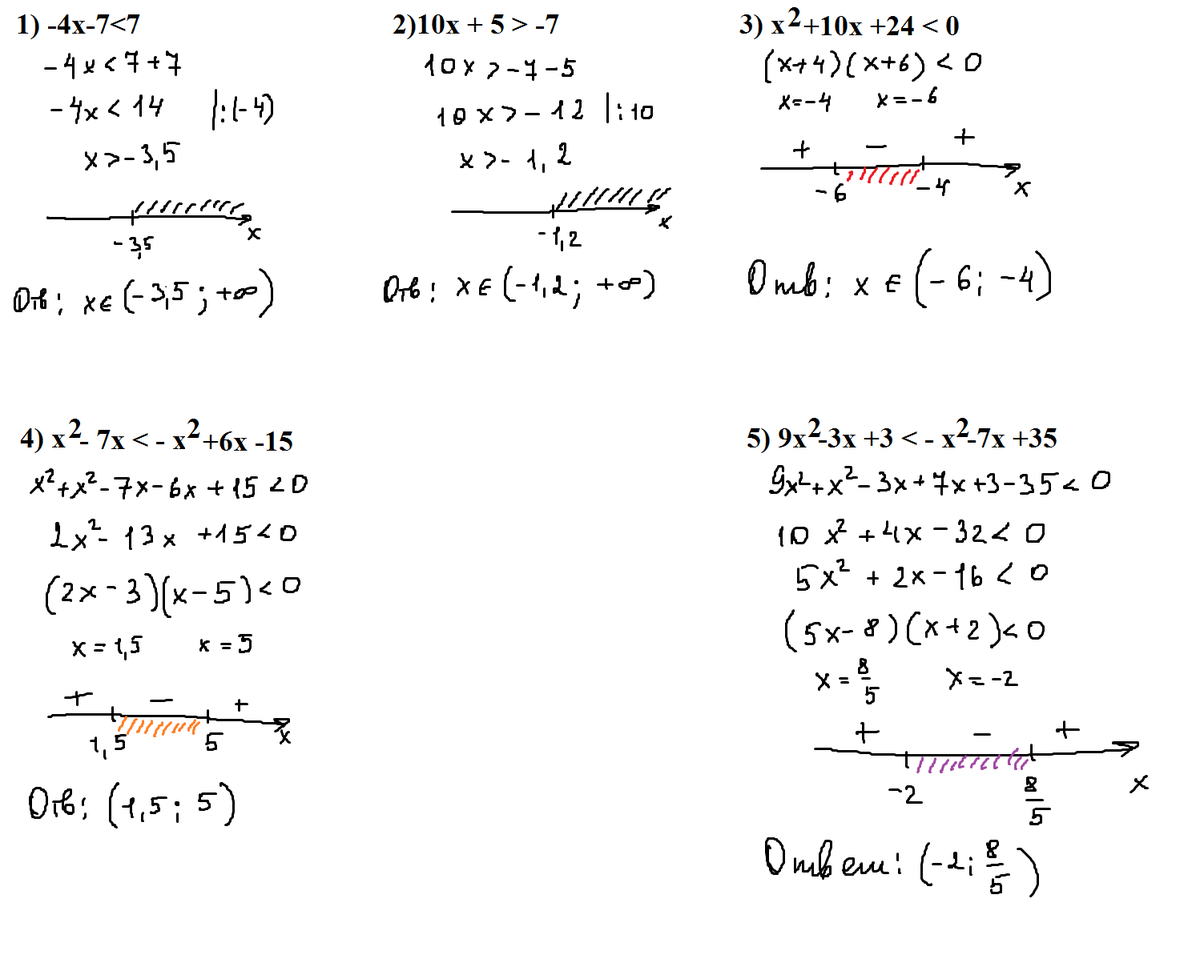 1) -4x-7<7
-4x<7+7
-4x<14 |:(-4)
x>-3,5
-3,5 x
Отв: x∈(-3,5; +∞)
2)10x + 5 > -7
10x>-7-5
10x>-12 |:10
x>-1,2
-1,2 x
Отв: x∈(-1,2; +∞)
3) x²+10x +24 < 0
(x+4)(x+6)<0
x=-4 x=-6
+ - +
-6 -4 x
Отв: x ∈ (-6; -4)
4) x²- 7x < - x²+6x -15
x²+x²-7x-6x+15<0
2x²-13x+15<0
(2x-3)(x-5)<0
x=1,5 x=5
+ - +
1,5 5 x
Отв: (1,5; 5)
5) 9x²-3x +3 < - x²-7x +35
9x²+x²-3x+7x+3-35<0
10x²+4x-32<0
5x²+2x-16<0
(5x-8)(x+2)<0
x=8/5 x=-2
+ - +
-2 8/5 x
Ответ: (-2; 8/5)